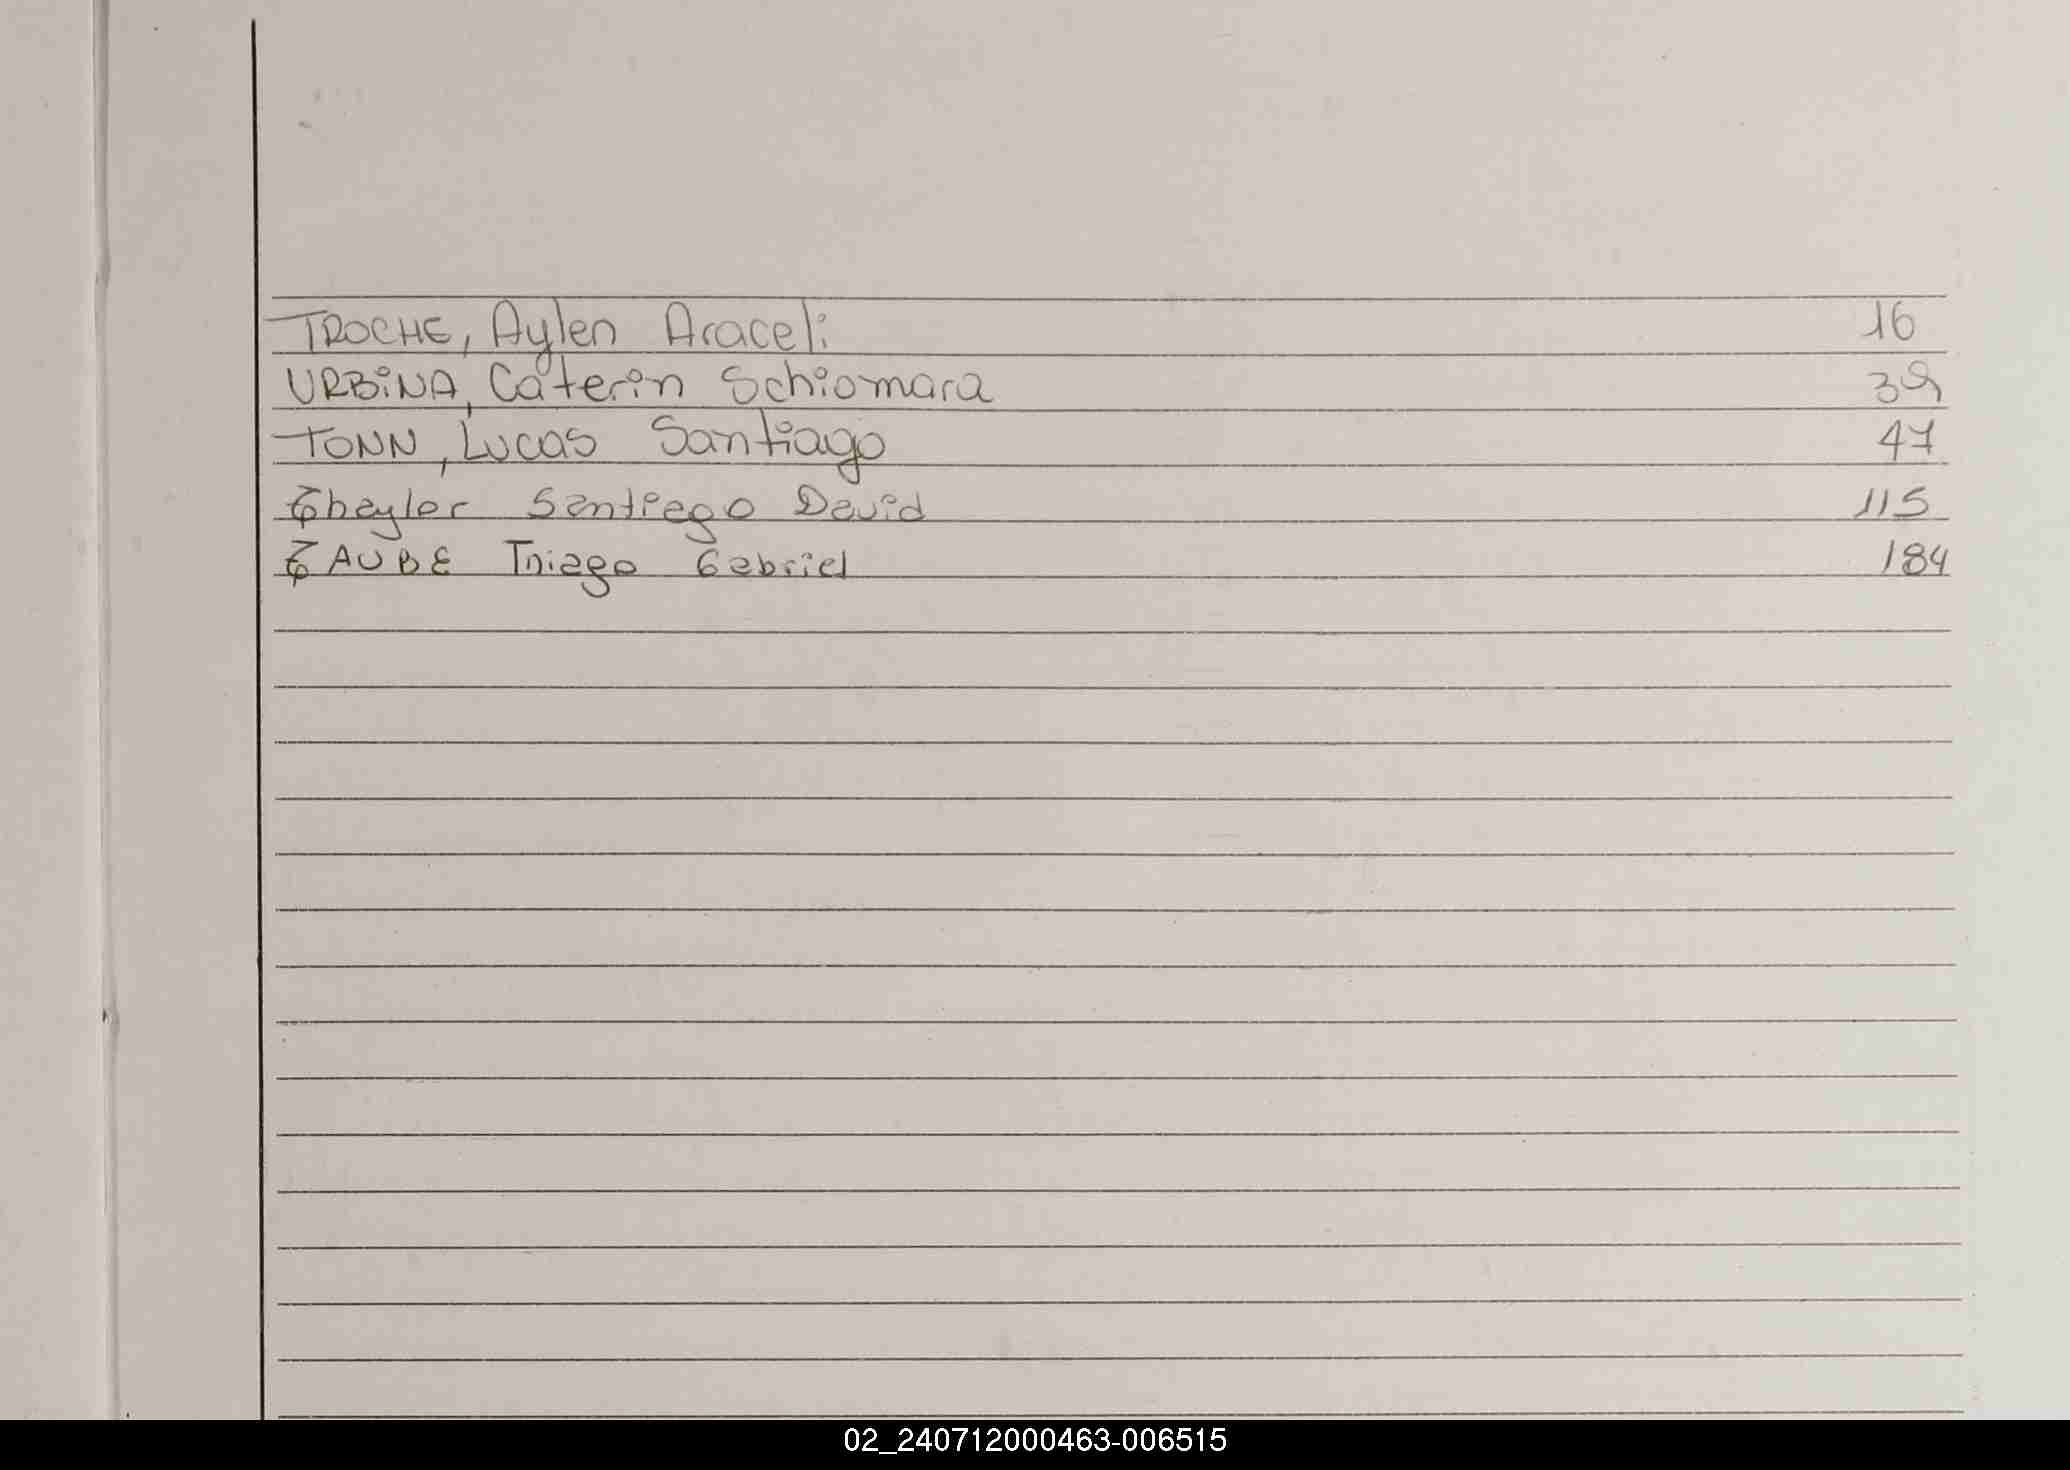 TROCHE, Aylen Araceli 16
URBiNA, Caterin Schiomara 39
TONN, Lucas Santiago 47
Thaylor Santiago David 115
TAUBE Thiago Gabriel 184
02_240712000463-006515